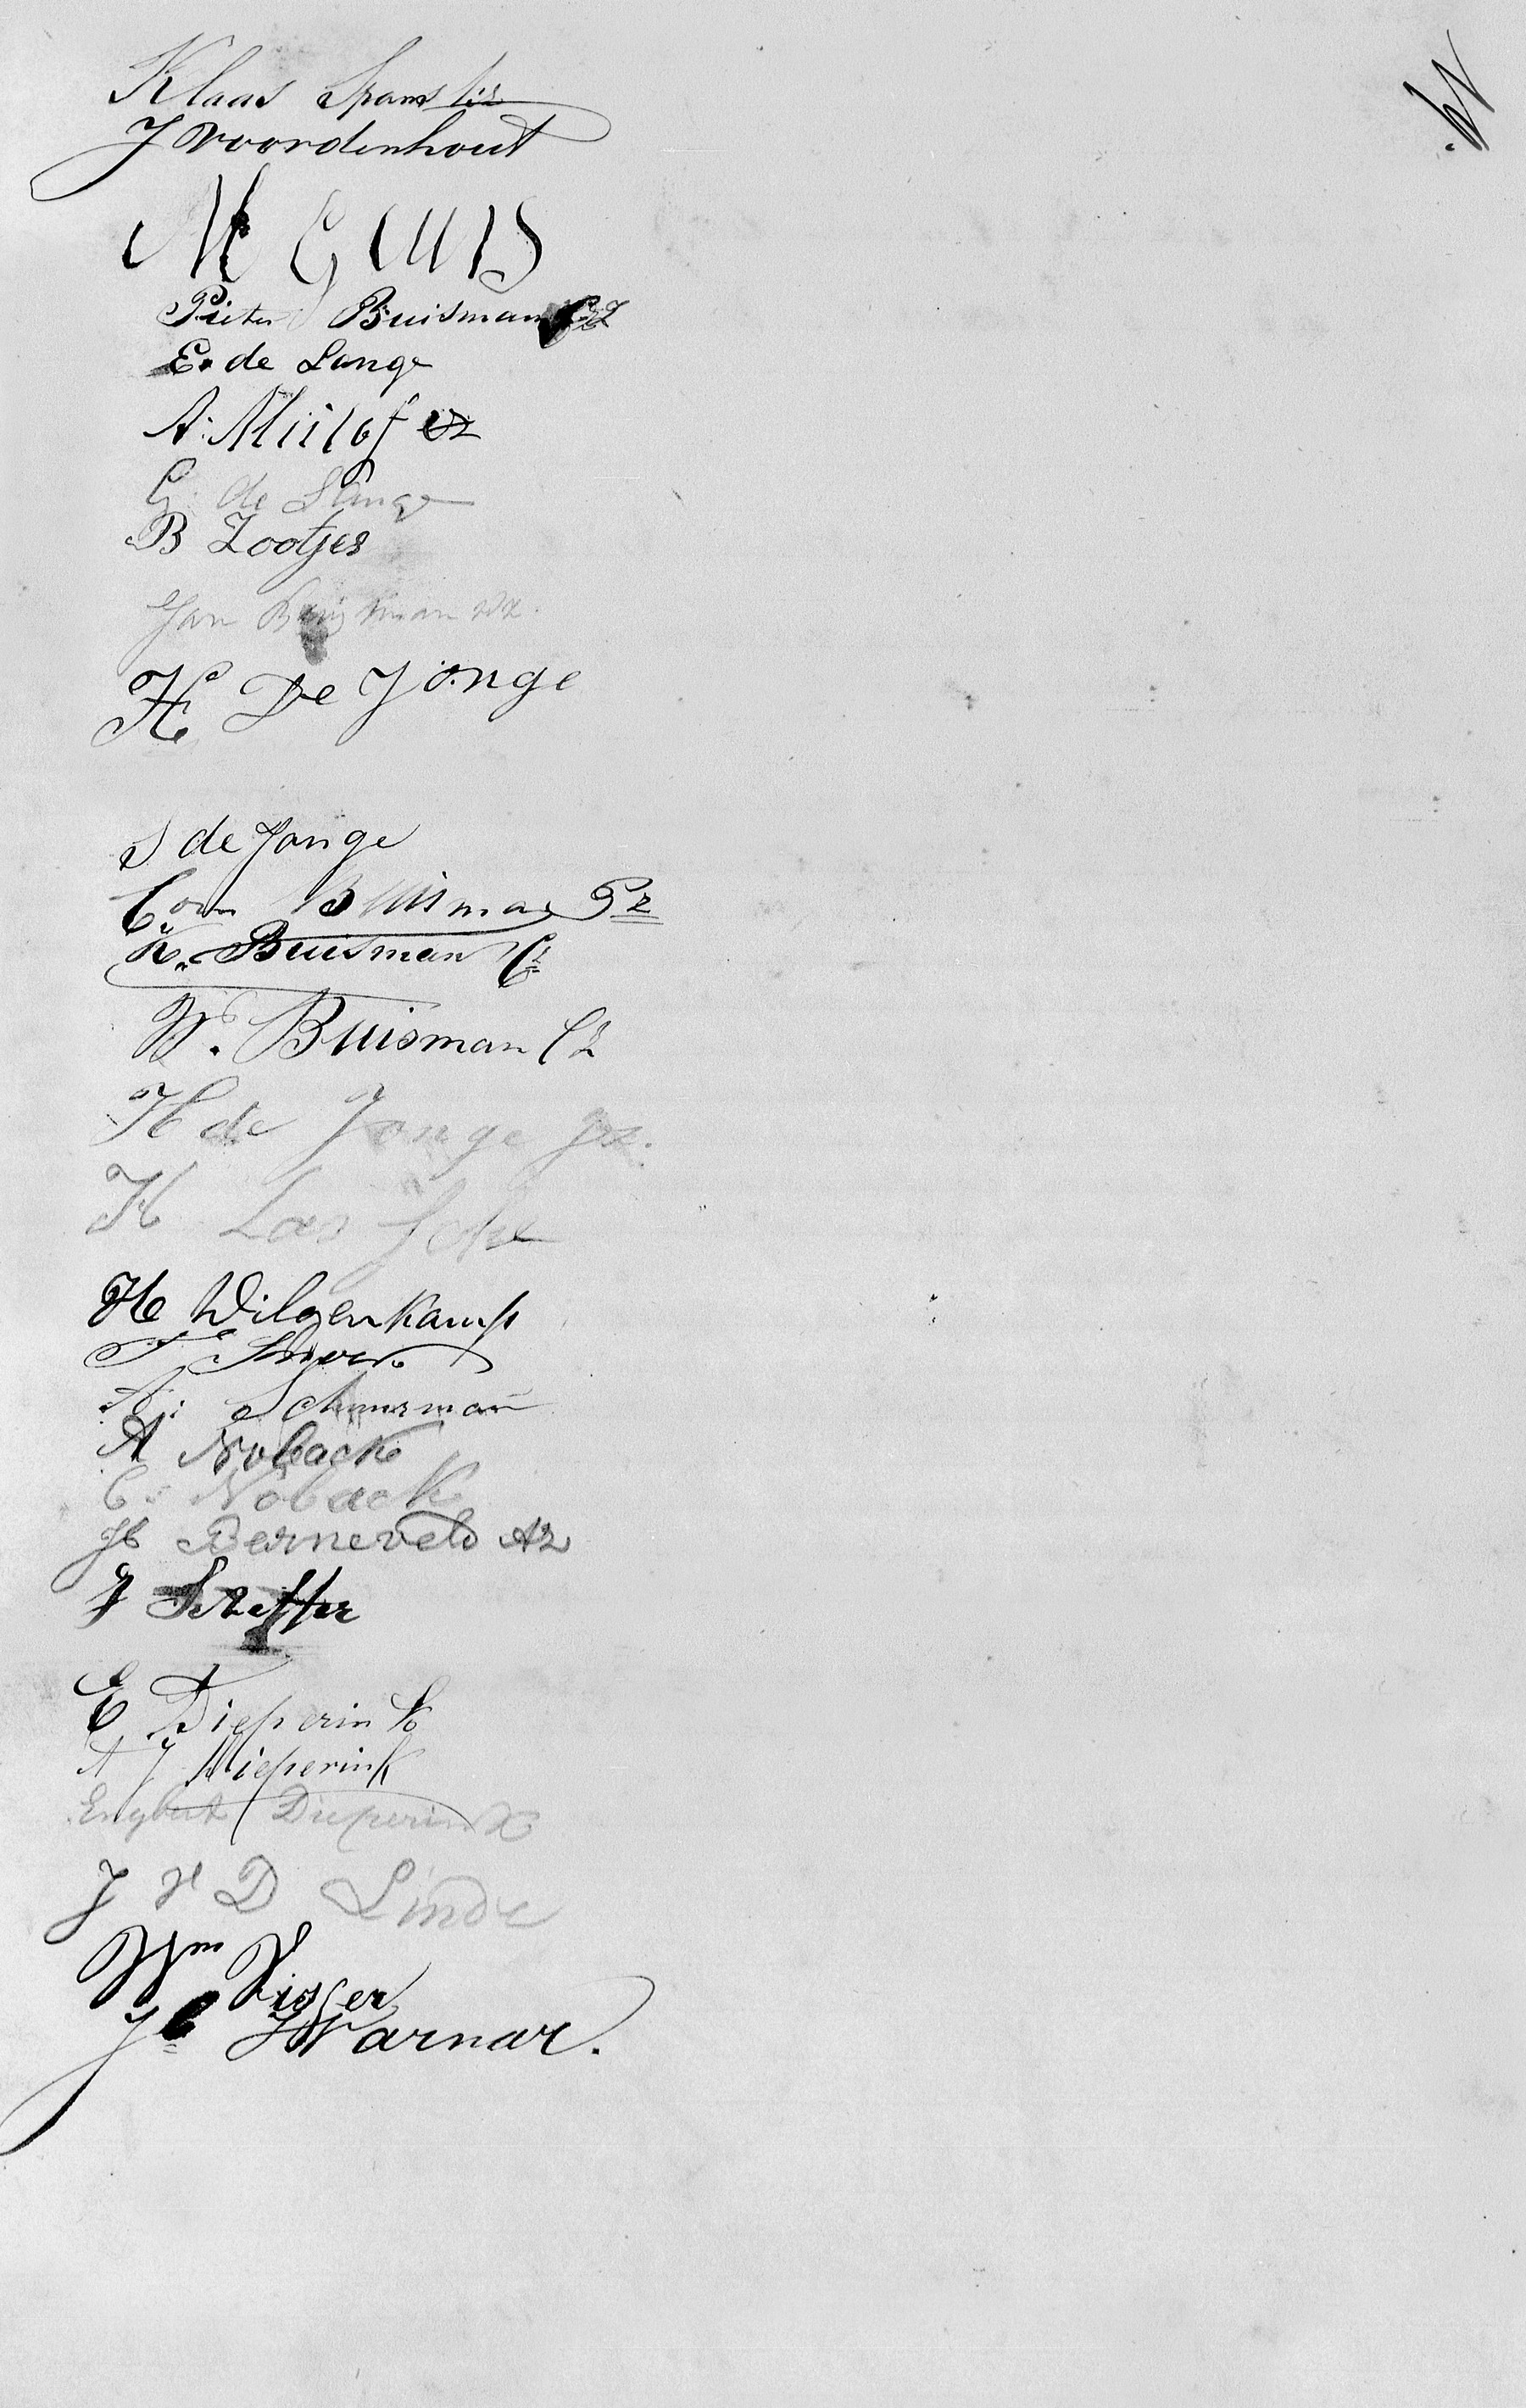 Klaas Spans
J Noordenhout
M
Pieter Buisman CZ
E. de Lange
A: Mulof
G: de Lange
B Zootjes
Jan Wz.
H De Jonge
S de Jonge
Corn Buisman Pz
K. Buisman Cz
W. Buisman Cz
H de Jonge Jz.
H
H Wilgenkamp
T
A: Schuurman
A Noback
C: Noback
H Berneveld Az
J
E Dieperink
A J Dieperink
Engbert Dieperink
J v D Linde
Wm Visser
Jb Warnar.